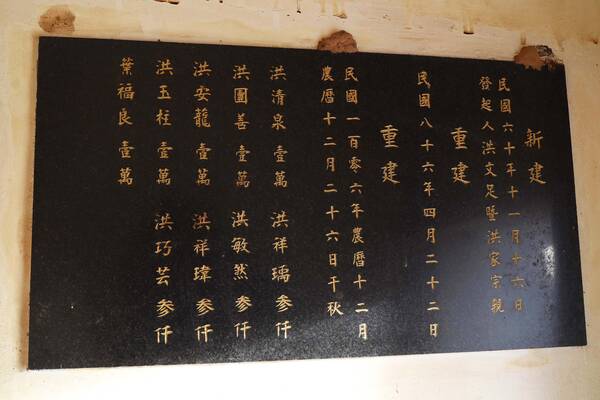 新建
民國六十年十一月十六日
發起人洪文足暨洪家宗親
重建
民國八十六年四月二十二日
重建
民國一百零六年農曆十二月
農曆十二月二十六日千秋
洪清泉 壹萬 洪祥瑀 参仟
洪圍善 壹萬 洪敏然 参仟
洪安龍 壹萬 洪祥瑋 参仟
洪玉柱 壹萬 洪巧芸 参仟
葉福良 壹萬